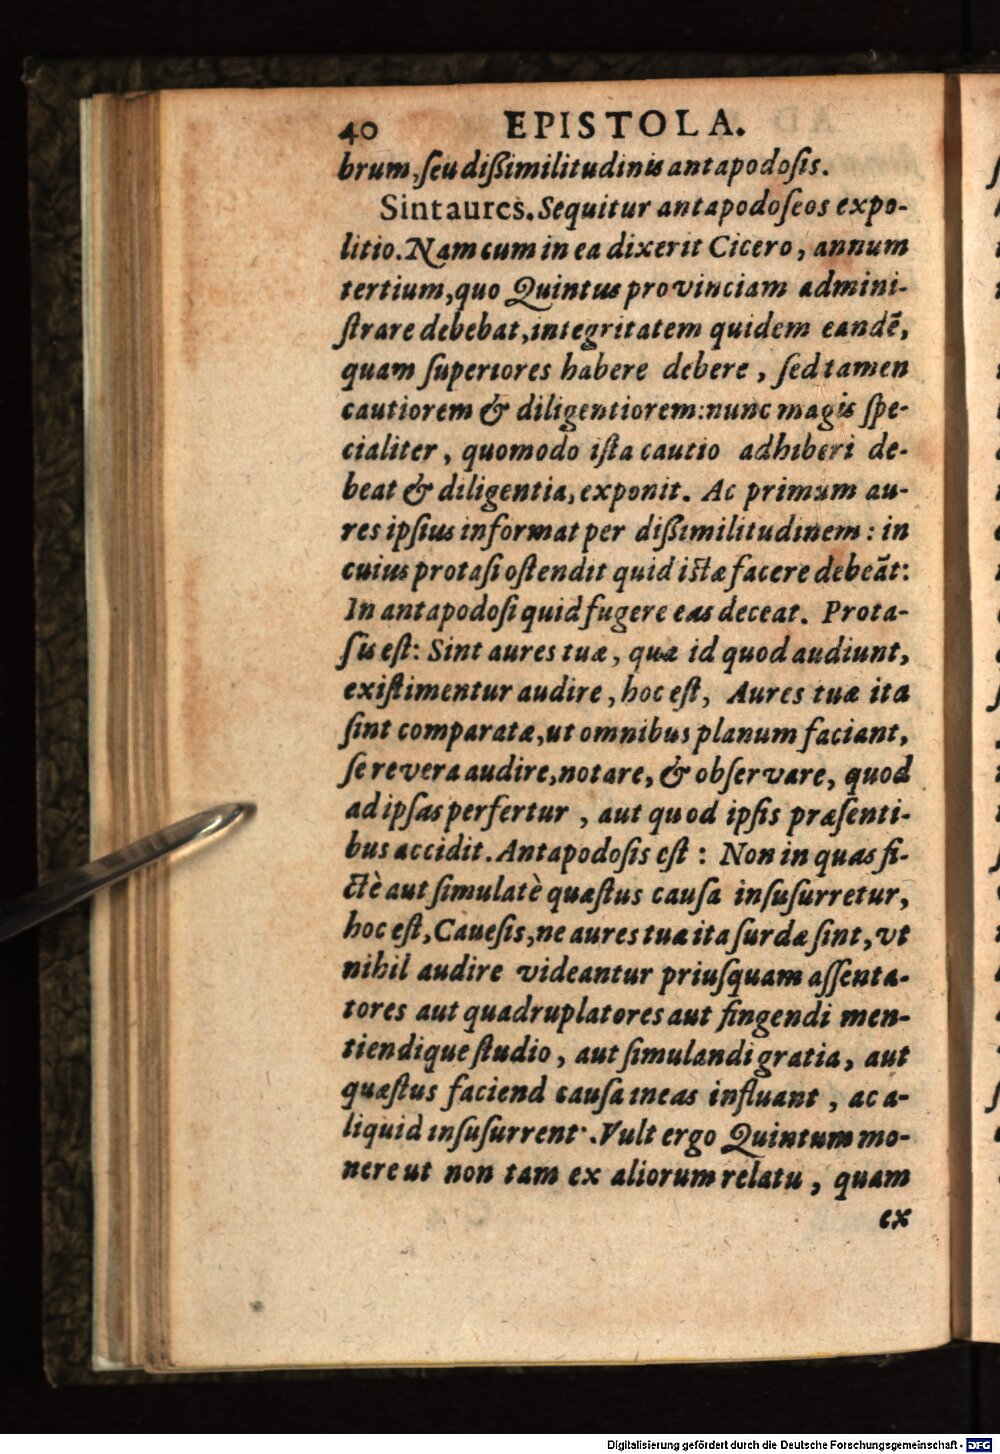 40 EPISTOLA.
brum, ſeu dißimilitudinis antapodoſis.
Sint aures. Sequitur antapodoſeos expo-
litio. Nam cum in ea dixerit Cicero, annum
tertium, quo Quintus provinciam admini-
ſtrare debebat, integritatem quidem eandē,
quam ſuperiores habere debere, ſed tamen
cautiorem & diligentiorem: nunc magis ſpe-
cialiter, quomodo iſta cautio adhiberi de-
beat & diligentia, exponit. Ac primum au-
res ipſius informat per dißimilitudinem: in
cuius protaſi oſtendit quid iſtæ facere debeãt:
In antapodoſi quid fugere eas deceat. Prota-
ſis eſt: Sint aures tuæ, quæ id quod audiunt,
existimentur audire, hoc eſt, Aures tuæ ita
ſint comparatæ, ut omnibus planum faciant,
ſe revera audire, notare, & obſervare, quod
ad ipſas perfertur, aut quod ipſis præſenti-
bus accidit. Antapodoſis eſt: Non in quas fi-
ctè aut ſimulatè quæſtus cauſa inſuſurretur,
hoc eſt, Caveſis, ne aures tuæ ita ſurdæ ſint, vt
nihil audire videantur priuſquam aſſenta-
tores aut quadruplatores aut fingendi men-
tiendique ſtudio, aut ſimulandi gratia, aut
quæſtus faciend cauſa in eas influant, ac a-
liquid inſuſurrent. Vult ergo Quintum mo-
nere ut non tam ex aliorum relatu, quam
ex
Digitalisierung gefördert durch die Deutsche Forschungsgemeinschaft - DFG